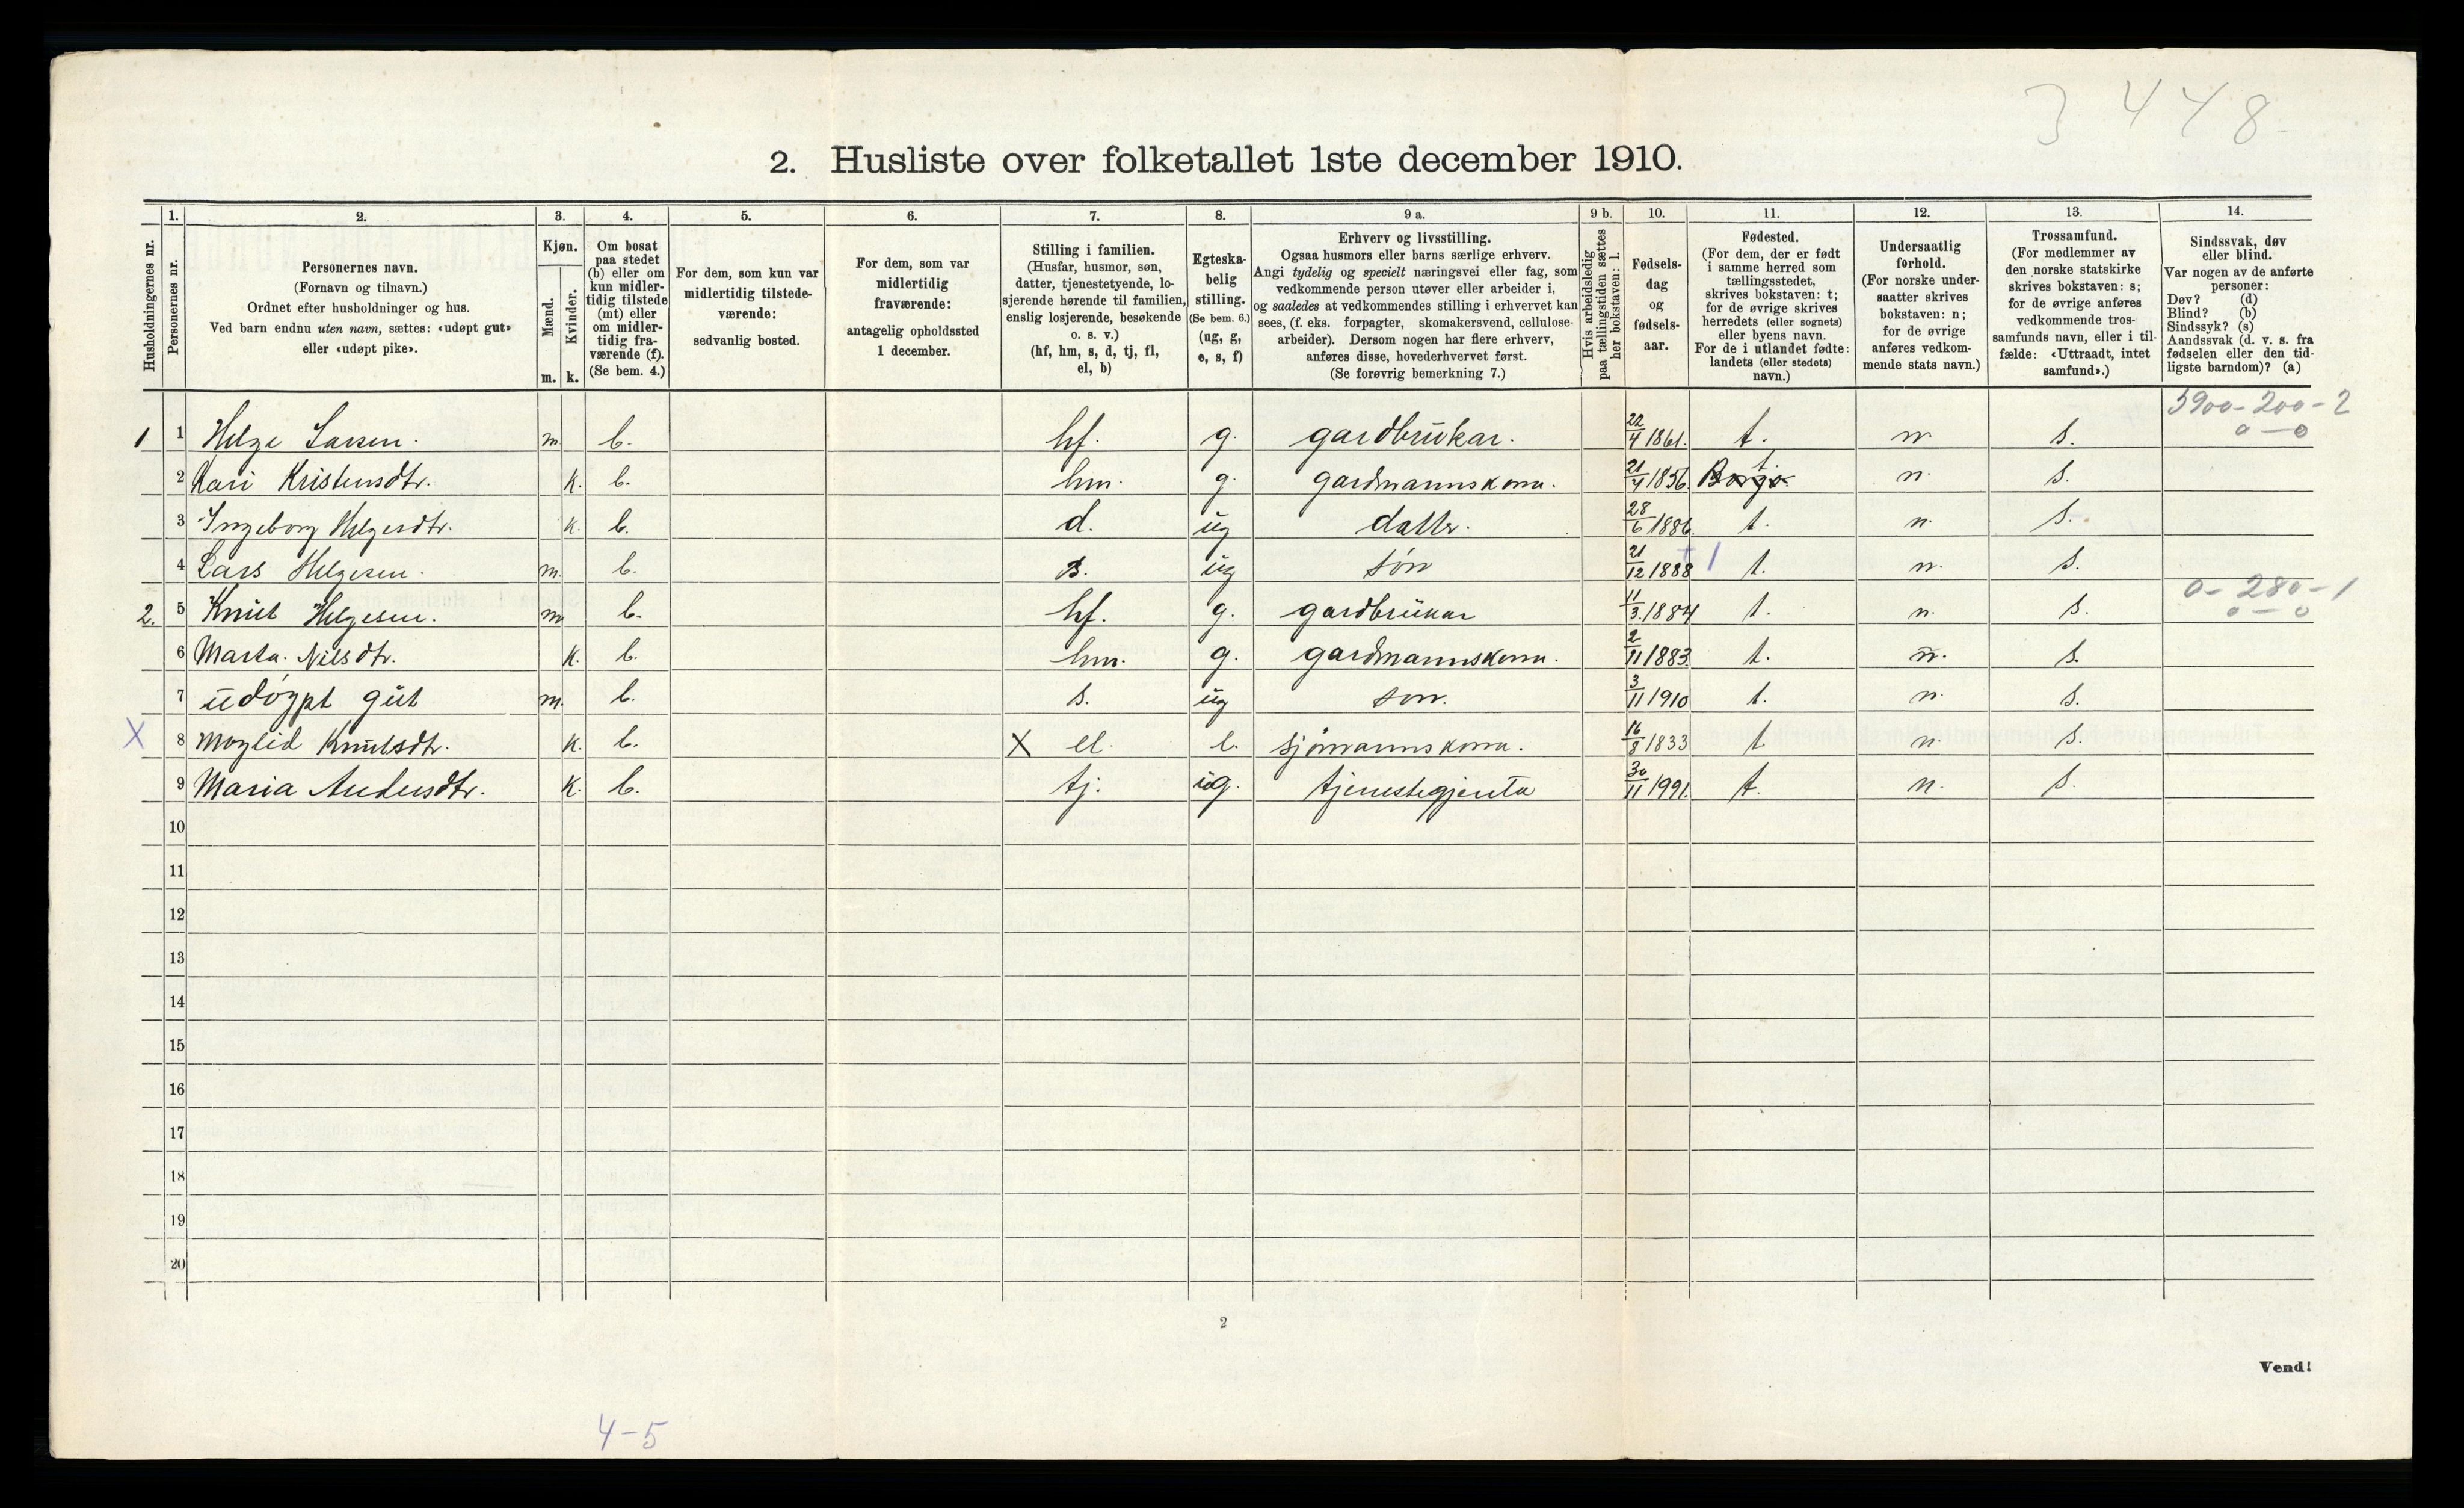 3 448-
2. Husliste over folketallet 1ste december 1910.
Husholdningernes nr.
1.
Personernes nr.
2.
Personernes navn.
(Fornavn og tilnavn.)
Ordnet efter husholdninger og hus.
Ved barn endnu uten navn, sættes: «udøpt gut»
eller «udøpt pike».
3.
Kjøn.
Mænd.
Kvinder.
m. k.
4.
Om bosat
paa stedet
(b) eller om
kun midler-
tidig tilstede
(mt) eller
om midler-
tidig fra-
værende (f).
(Se bem. 4.)
5.
For dem, som kun var
midlertidig tilstede-
værende:
sedvanlig bosted.
6.
For dem, som var
midlertidig
fraværende:
antagelig opholdssted
1 december.
7.
Stilling i familien.
(Husfar, husmor, søn,
datter, tjenestetyende, lo-
sjerende hørende til familien,
enslig losjerende, besøkende
o. s. v.)
(hf, hm, s, d, tj, fl,
el, b)
8.
Egteska-
belig
stilling.
(Se bem. 6.)
(ug, g,
e, s, f)
9 a.
Erhverv og livsstilling.
Ogsaa husmors eller barns særlige erhverv.
Angi tydelig og specielt næringsvei eller fag, som
vedkommende person utøver eller arbeider i,
og saaledes at vedkommendes stilling i erhvervet kan
sees, (f. eks. forpagter, skomakersvend, cellulose-
arbeider). Dersom nogen har flere erhverv,
anføres disse, hovederhvervet først.
(Se forøvrig bemerkning 7.)
9 b.
Hvis arbeidsledig
paa tællingstiden sættes
her bokstaven: l.
10.
Fødsels-
dag
og
fødsels-
aar.
11.
Fødested.
(For dem, der er født
i samme herred som
tællingsstedet,
skrives bokstaven: t;
for de øvrige skrives
herredets (eller sognets)
eller byens navn.
For de i utlandet fødte:
landets (eller stedets)
navn.)
12.
Undersaatlig
forhold.
(For norske under-
saatter skrives
bokstaven: n;
for de øvrige
anføres vedkom-
mende stats navn.)
13.
Trossamfund.
(For medlemmer av
den norske statskirke
skrives bokstaven: s;
for de øvrige anføres
vedkommende tros-
samfunds navn, eller i til-
fælde: «Uttraadt, intet
samfund».)
14.
Sindssvak, døv
eller blind.
Var nogen av de anførte
personer:
Døv? (d)
Blind? (b)
Sindssyk? (s)
Aandssvak (d. v. s. fra
fødselen eller den tid-
ligste barndom)? (a)
5900-200-2
0-0
1 1 Helge Larsen. m b. hf. g. gardbrukar. 22/4 1861. t. n. s.
2 Kari Kristensdtr. k. b. hm. g. gardmannskona. 21/4 1856. t. n. s.
3 Ingeborg Helgesdtr. k. b. d. ug datter. 28/6 1886. t. n. s.
4 Lars Helgesen. m. b. s. ug søn 21/12 1888 t. n. s.
0-280-1
0-0
2. 5 Knut Helgesen. m b. hf. g. gardbrukar 11/3.1884 t. n. s.
6 Marta. Nilsdtr. k. b. hm. g. gardmannskona. 2/11 1883. t. n. s.
7 udøypt gut m. b. s. ug son. 3/11 1910 t. n. s.
X 8 Moylid Knutsdtr. k. b. X el. sjømannskona. 16/8 1833 t. n. s.
9 Maria Andersdtr. k. b. tj. ug. tjenestegjenta 30/11 1991. t. n. s.
10
11
12
13
14
15
16
17
18
19
20
2
Vend!
4-5